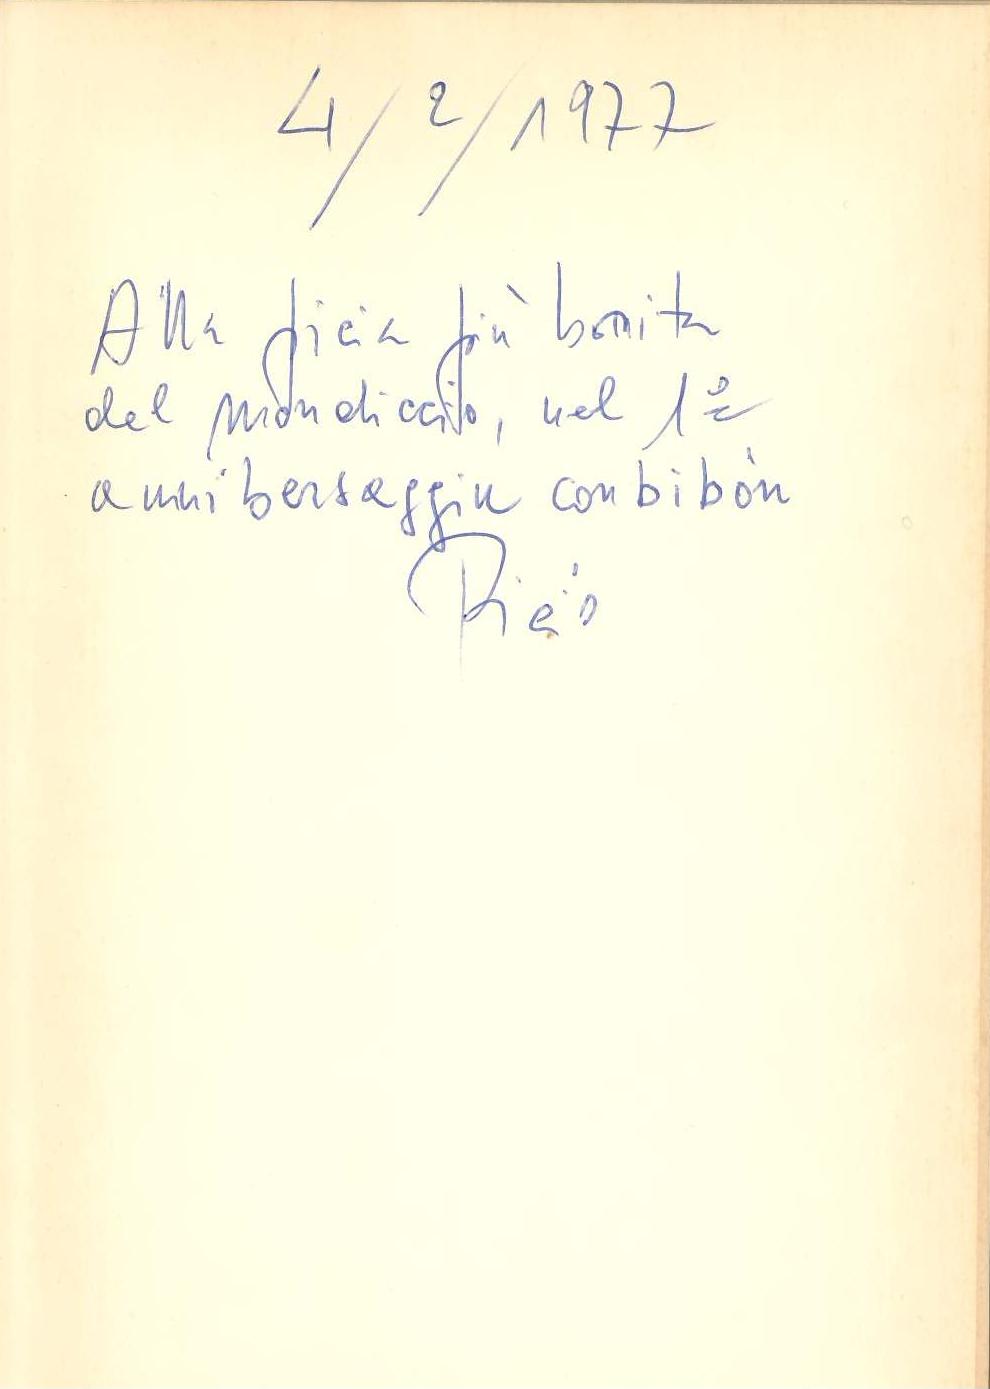 4/2/1977
Alla picia più bonita
del mondiccio, nel 1º
annibersaggiu conbibón